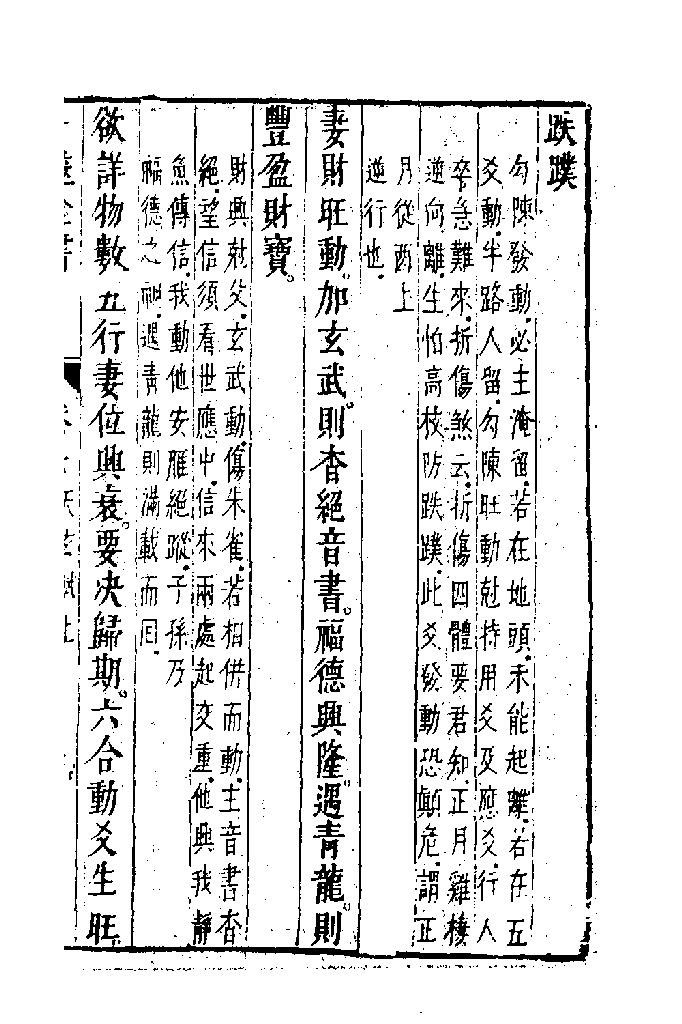 跌蹼
勾陳發動必主淹留若在地頭未能起離若在五
爻動半路人留勾陳旺動尅持用爻及應爻行人
卒急難來折傷煞云折傷四體要君知正月雞棲
逆向離生怕高枝防跌蹼此爻發動恐顛危謂正
月從酉上
逆行也
妻財旺動加玄武則杳絕音書福德興隆遇青龍則
豐盈財寶
財興尅父玄武動傷朱雀若相併而動主音書杳
絕望信須看世應中信來兩處起交重他興我靜
魚傳信我動他安雁絕蹤子孫乃
福德之神遇青龍則滿載而囘
欲詳物數五行妻位興衰要决歸期六合動爻生旺